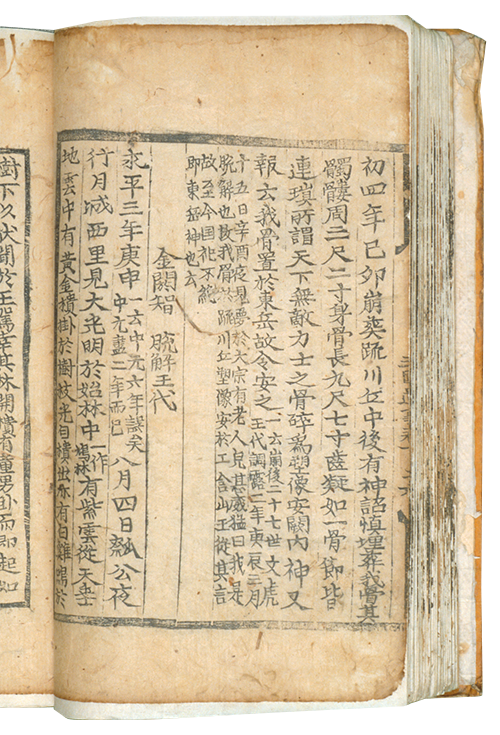 初四年己卯崩葬疏川丘中後有神詔慎埋葬我骨其
髑髏周三尺二寸身骨長九尺七寸齒凝如一骨節皆
連瑣所謂天下無敵力士之骨碎爲塑像安闕內神又
報云我骨置於東岳故令安之一云崩後二十七世文虎
王代調露二年庚辰三月
十五日辛酉夜見夢於大宗有老人見其威猛曰我是
脫解也拔我骨於疏川丘塑像安於土含山王從其言
故至今國祀不絶
即東岳神也云
金閼智 脫解王代
永平三年庚申一云中元六年誤矣
中元盡二年而已八月四日瓠公夜
行月城西里見大光明於始林中一作
鳩林有紫雲從天垂
地雲中有黃金樻掛於樹枝光自樻出亦有白雞鳴於
樹下以狀聞於王駕幸其林開樻有童男臥而即起如